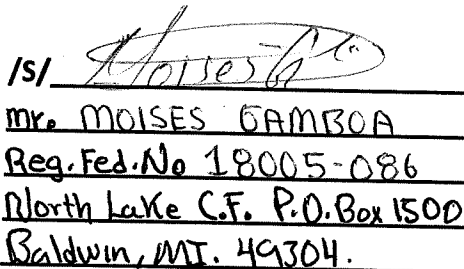 /S/ Moises G
mr. MOISES GAMBOA
Reg. Fed. No 18005-086
North Lake C.F. P.O. Box 1500
Baldwin, MI. 49304.